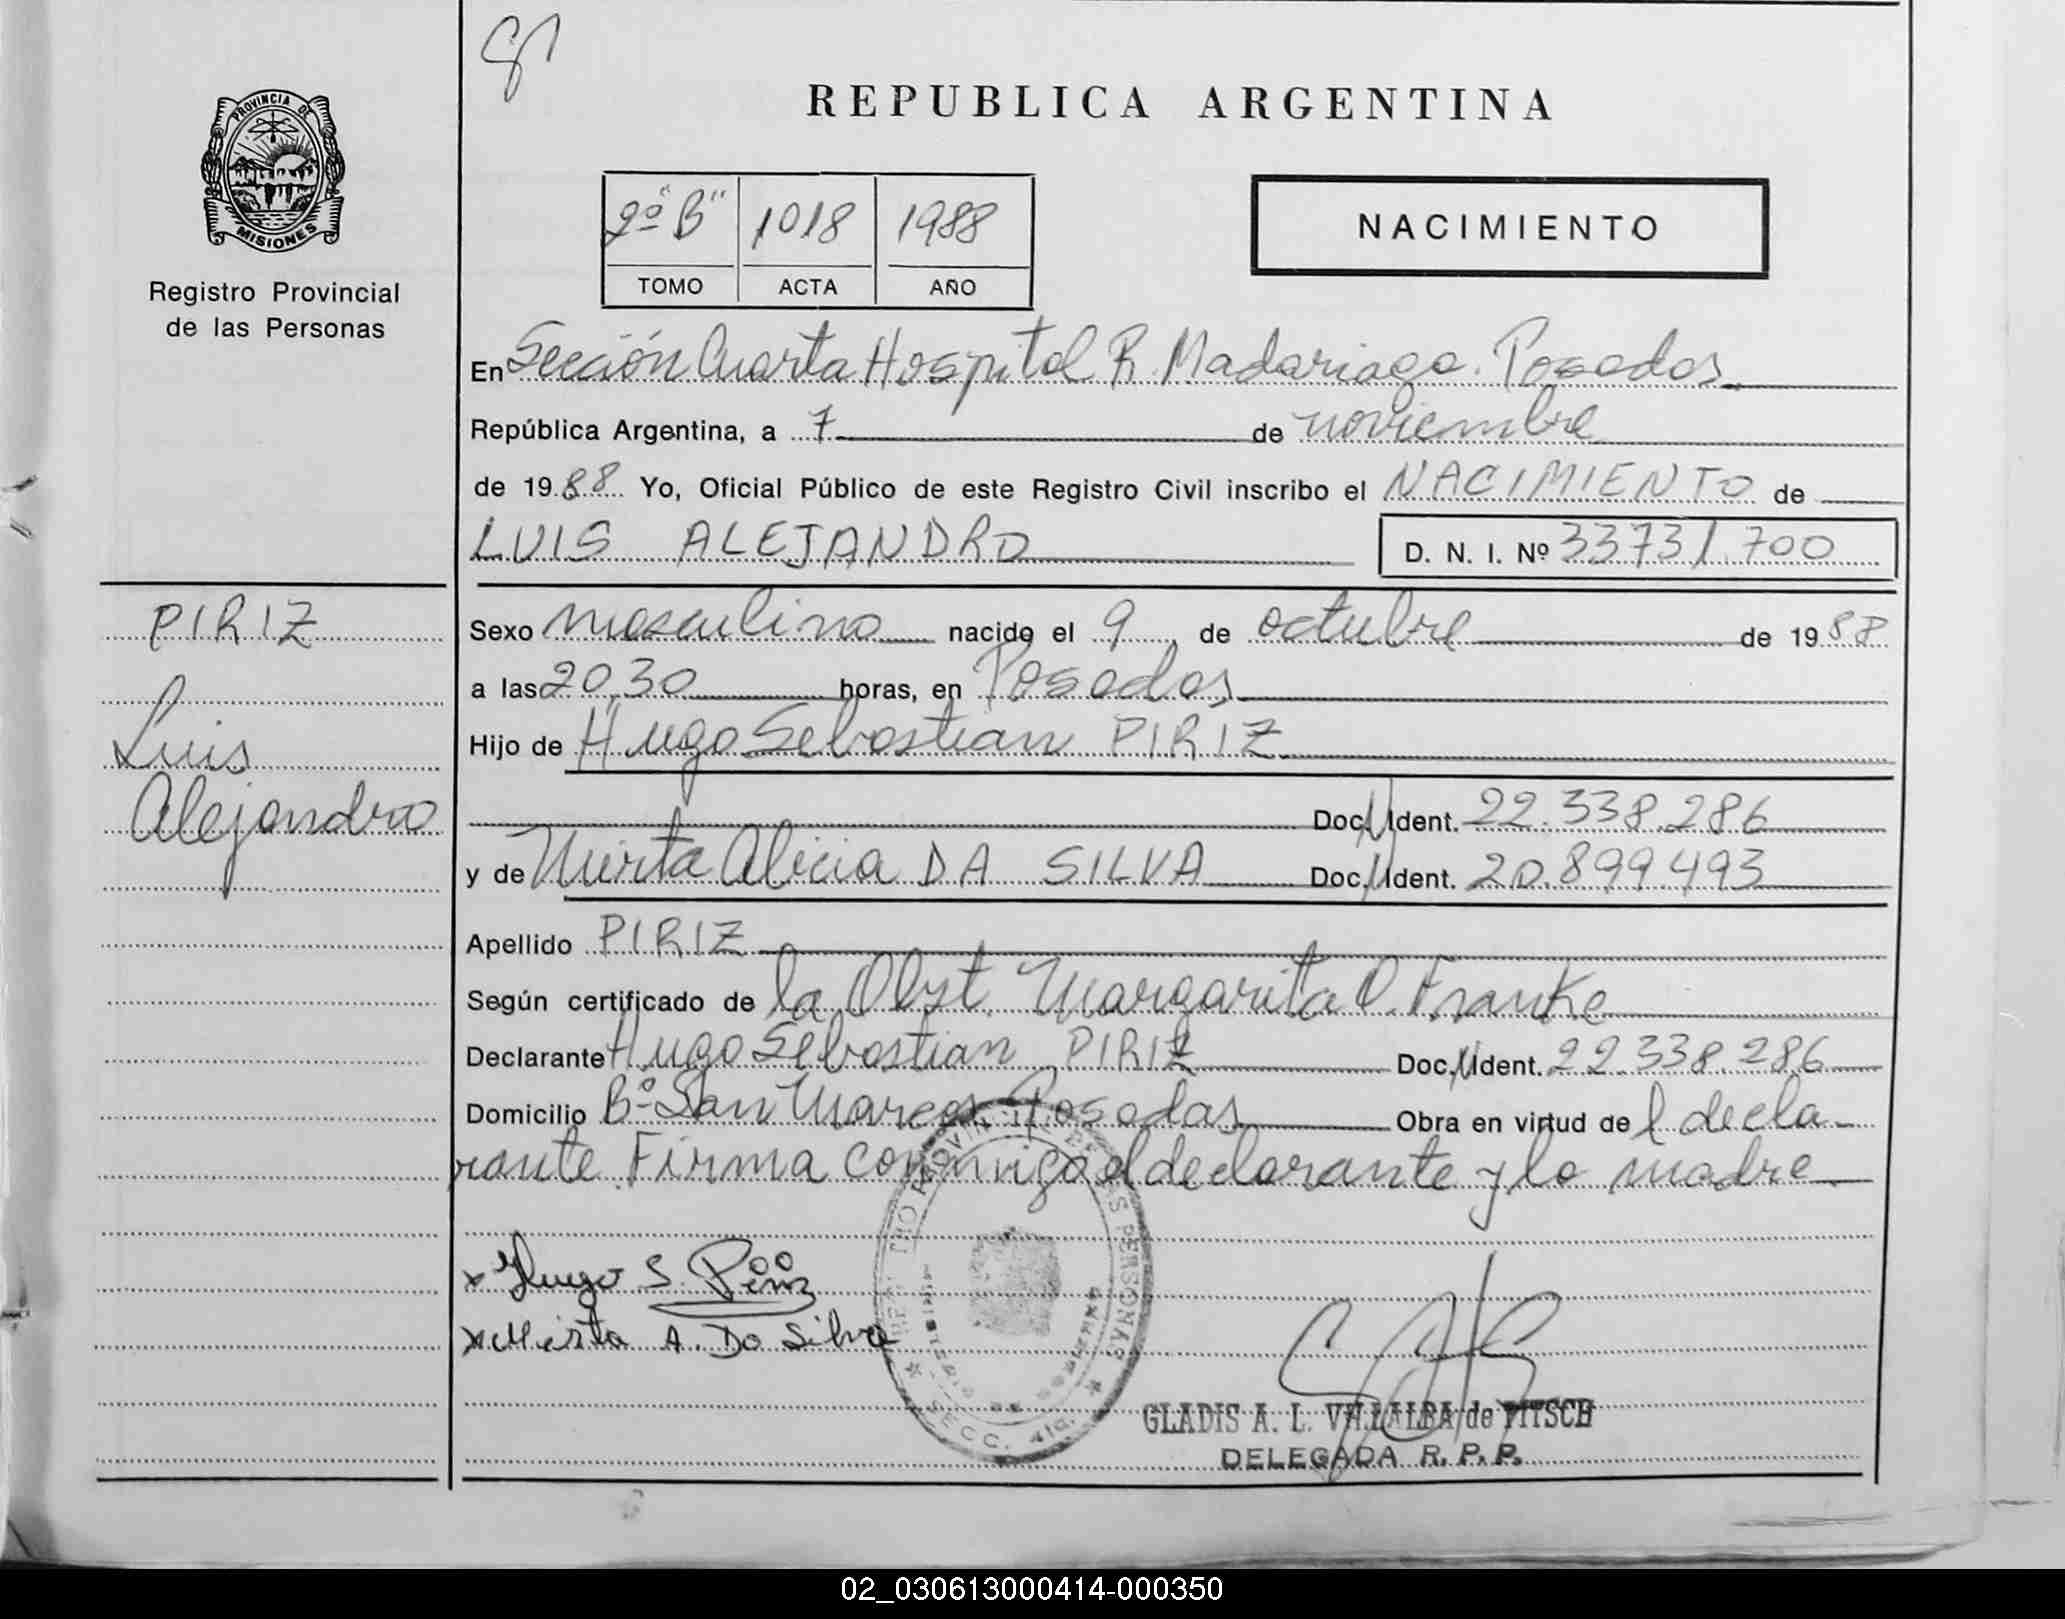 REPUBLICA ARGENTINA
PROVINCIA DE
MISIONES
Registro Provincial
de las Personas
2º "B" 1018 1988
TOMO ACTA AÑO
NACIMIENTO
En Sección Cuarta Hospital R. Madariaga. Posadas
República Argentina, a 7 de noviembre
de 1988 Yo, Oficial Público de este Registro Civil inscribo el NACIMIENTO de
LUIS ALEJANDRO D. N. I. Nº 33731.700
PIRIZ
Luis
Alejandro
Sexo masculino nacido el 9 de octubre de 1988
a las 20,30 horas, en Posadas
Hijo de Hugo Sebastian PIRIZ
Doc. N Ident. 22.338.286
y de Mirta Alicia DA SILVA Doc. N Ident. 20.899.493
Apellido PIRIZ
Según certificado de la Obst. Margarita O. Franke
Declarante Hugo Sebastian PIRIZ Doc. N Ident. 22.338.286
Domicilio Bº San Marcos Posadas Obra en virtud de l decla-
rante. Firma conmigo el declarante y la madre
x Hugo S. Piriz
x Mirta A. Da Silva
SECC. 4ta.
GLADIS A. L. VILLALBA de FITSCH
DELEGADA R. P. P.
02_030613000414-000350